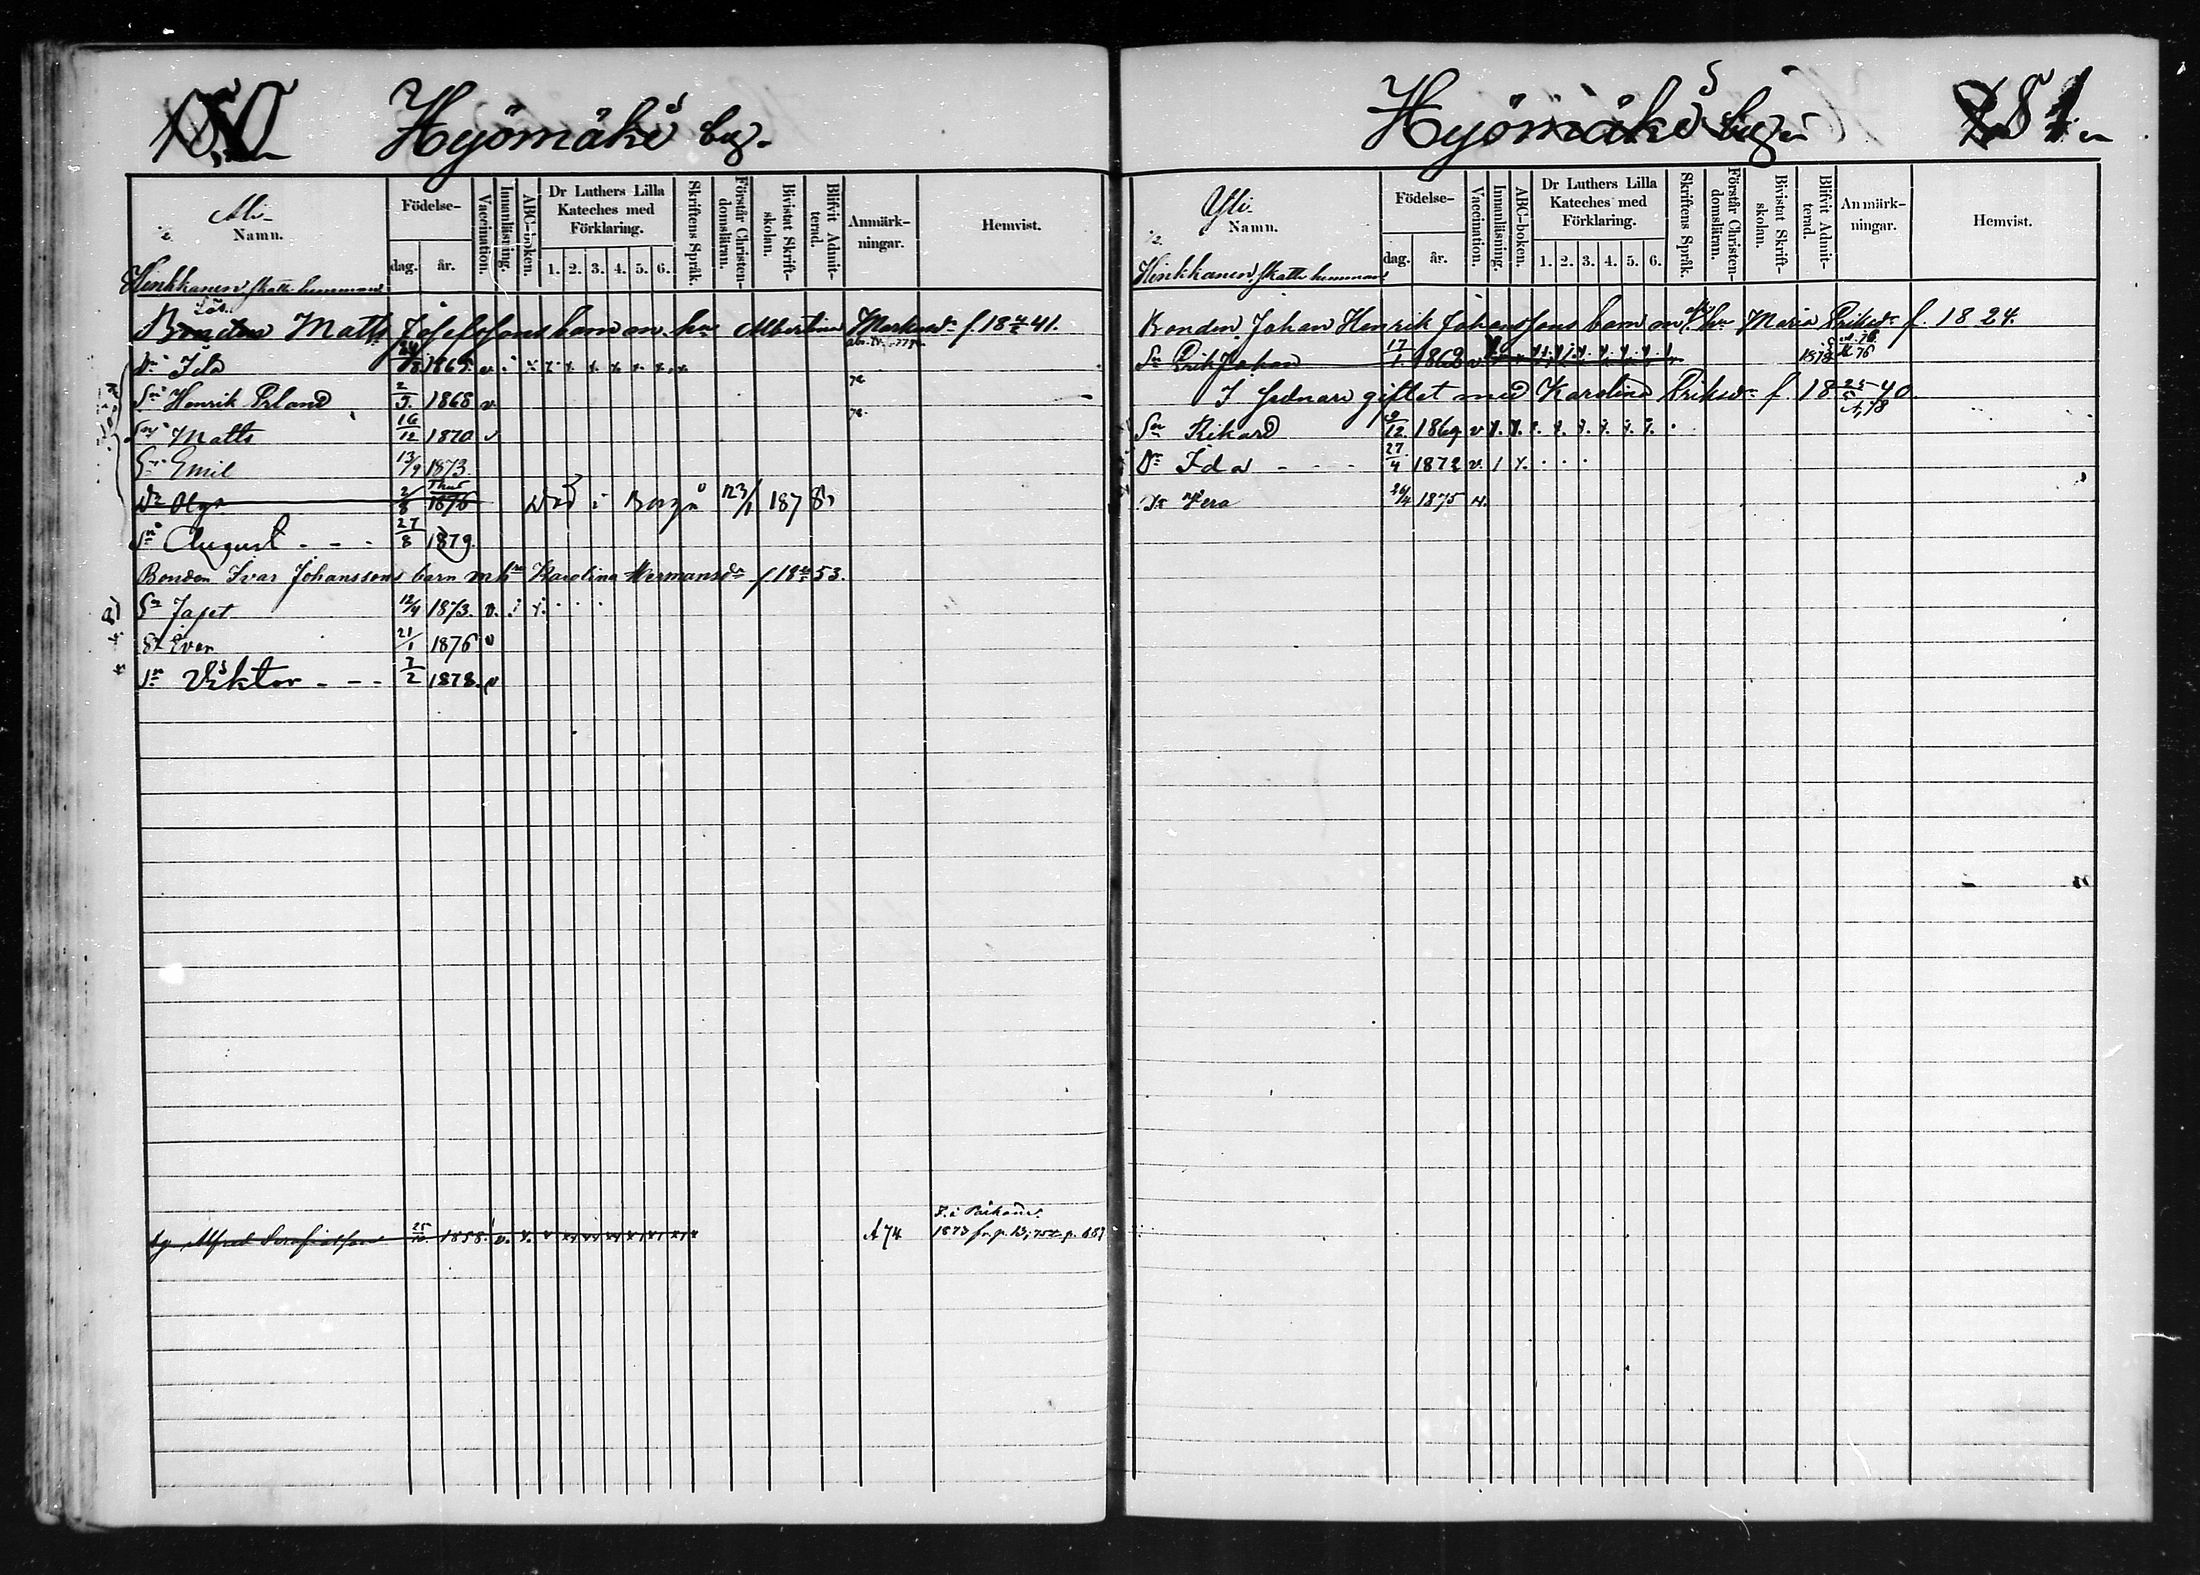 180 Hyömäki by.
Ali-
Namn. Födelse- dag. år. Vaccination. Innanläsning. ABC-boken. Dr Luthers Lilla Kateches med Förklaring. 1. 2. 3. 4. 5. 6. Skriftens Språk. Förstår Christendomsläran. Bivistat Skriftskolan. Blifvit Admitterad. Anmärkningar. Hemvist.
Hinkkanen skatte hemman
Bonden Matts Josefssons barn m. hu Albertina Markusdr f. 18 41.
Dr Ida 1865. v
Sn Henrik Erland 2/5 1868 v
Sn Matts 16/12 1870 v
Sn Emil 13/9 1873.
Dr Olga 2/8 1876 Död i Borgå 23/1 1878
Sn August - - - 27/8 1879.
Bonden Ivar Johanssons barn m hu Karolina Hermansdr f 18 53.
Sn Japet 12/4 1873. v.
Sn Ivar 21/1 1876 v
Sn Viktor - - - 7/2 1878. v
Alfred 25/10 1858. v. A 74 1873
Hyömäki by 181
Yli.
Namn. Födelse- dag. år. Vaccination. Innanläsning. ABC-boken. Dr Luthers Lilla Kateches med Förklaring. 1. 2. 3. 4. 5. 6. Skriftens Språk. Förstår Christendomsläran. Bivistat Skriftskolan. Blifvit Admitterad. Anmärkningar. Hemvist.
Hinkkanen skatte hemman
Bonden Johan Henrik Johanssons barn m hu Maria Eriksdr f. 1824.
Sn Erik Johan 17/1 1862 v
I sednare giftet med Karolina Eriksdr f. 18 25 40.
Sn Rikard 9/12 1869 v
Dr Ida - - - 27/4 1872 v.
Dr Vera 26/4 1875 v.